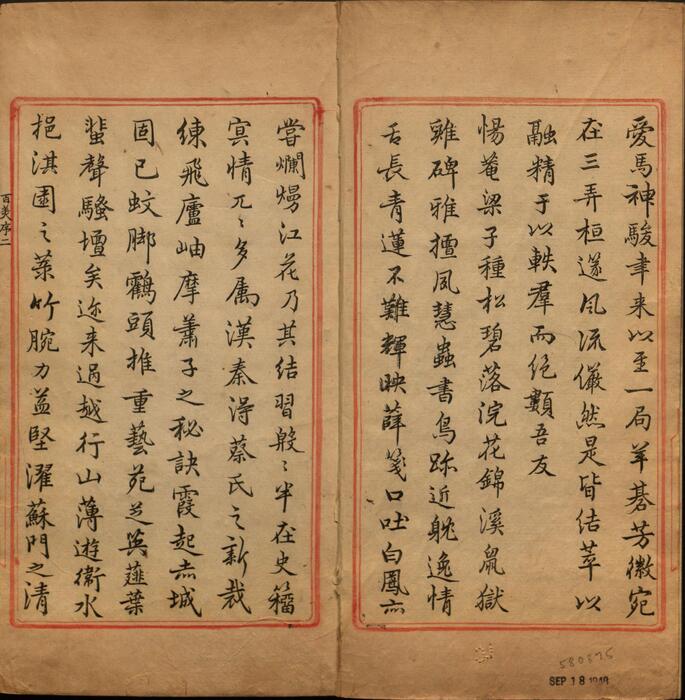 愛馬神駿聿来以至一局羊碁芳徽宛
在三弄桓邃風流儼然是皆结萃以
融精于以軼羣而绝顥吾友
惕菴梁子種松碧落浣花錦溪鼠獄
雞碑雅擅夙慧蟲書鳥跡近躭逸情
舌長青蓮不難輝映薛箋口吐白鳳亦
嘗爛熳江花乃其结習殷〻半在史籀
冥情兀〻多属漢秦淂蔡氏之新裁
练飛廬岫摩蕭子之秘訣霞起赤城
固已蚊脚鸛頭推重藝苑芝英薤葉
蜚聲騷壇矣迩来過越行山薄遊衛水
挹淇園之菉竹腕力益堅濯蘇門之清
百美序二
580875
SEP 18 1949